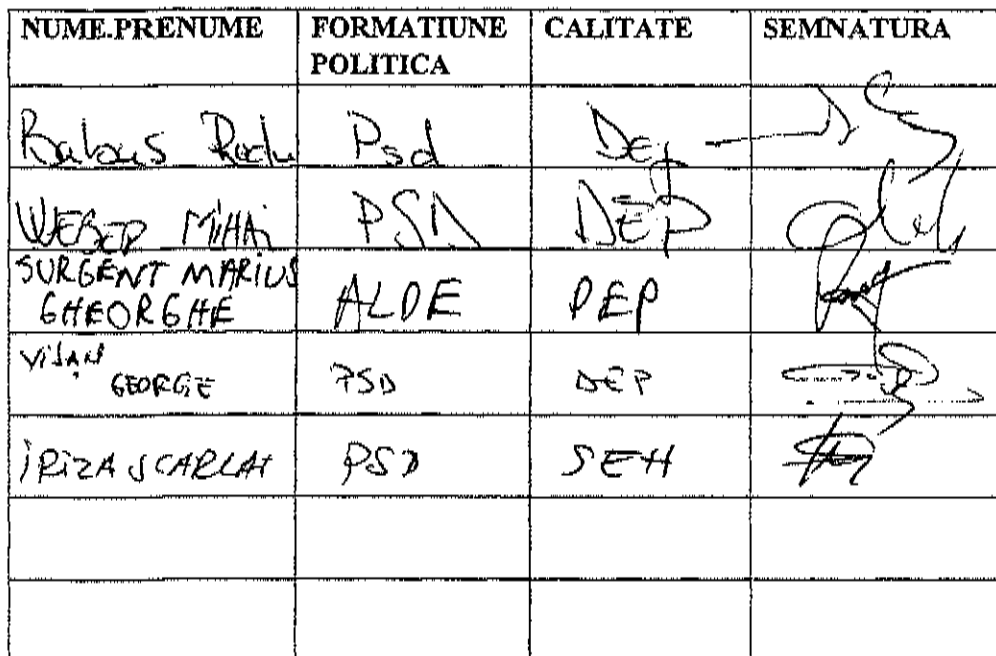 NUME.PRENUME FORMATIUNE POLITICA CALITATE SEMNATURA
Babus Radu Psd Dep
WEBER MIHAI PSD DEP
SURGENT MARIUS GHEORGHE ALDE DEP
VIŞAN GEORGE PSD DEP
IRIZA SCARLAT PSD